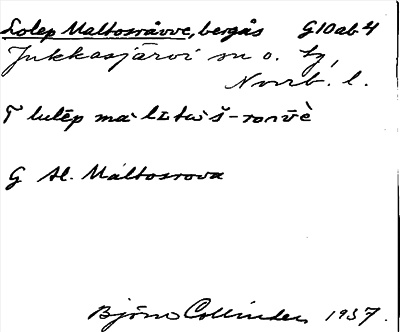 Lolep Maltosråvve, bergås G10ab4
Jukkasjärvi sn o. tg,
Norrb. l.
T lulēp māltuš-roavvè
G St. Máltosrova
Björn Collinder 1937.